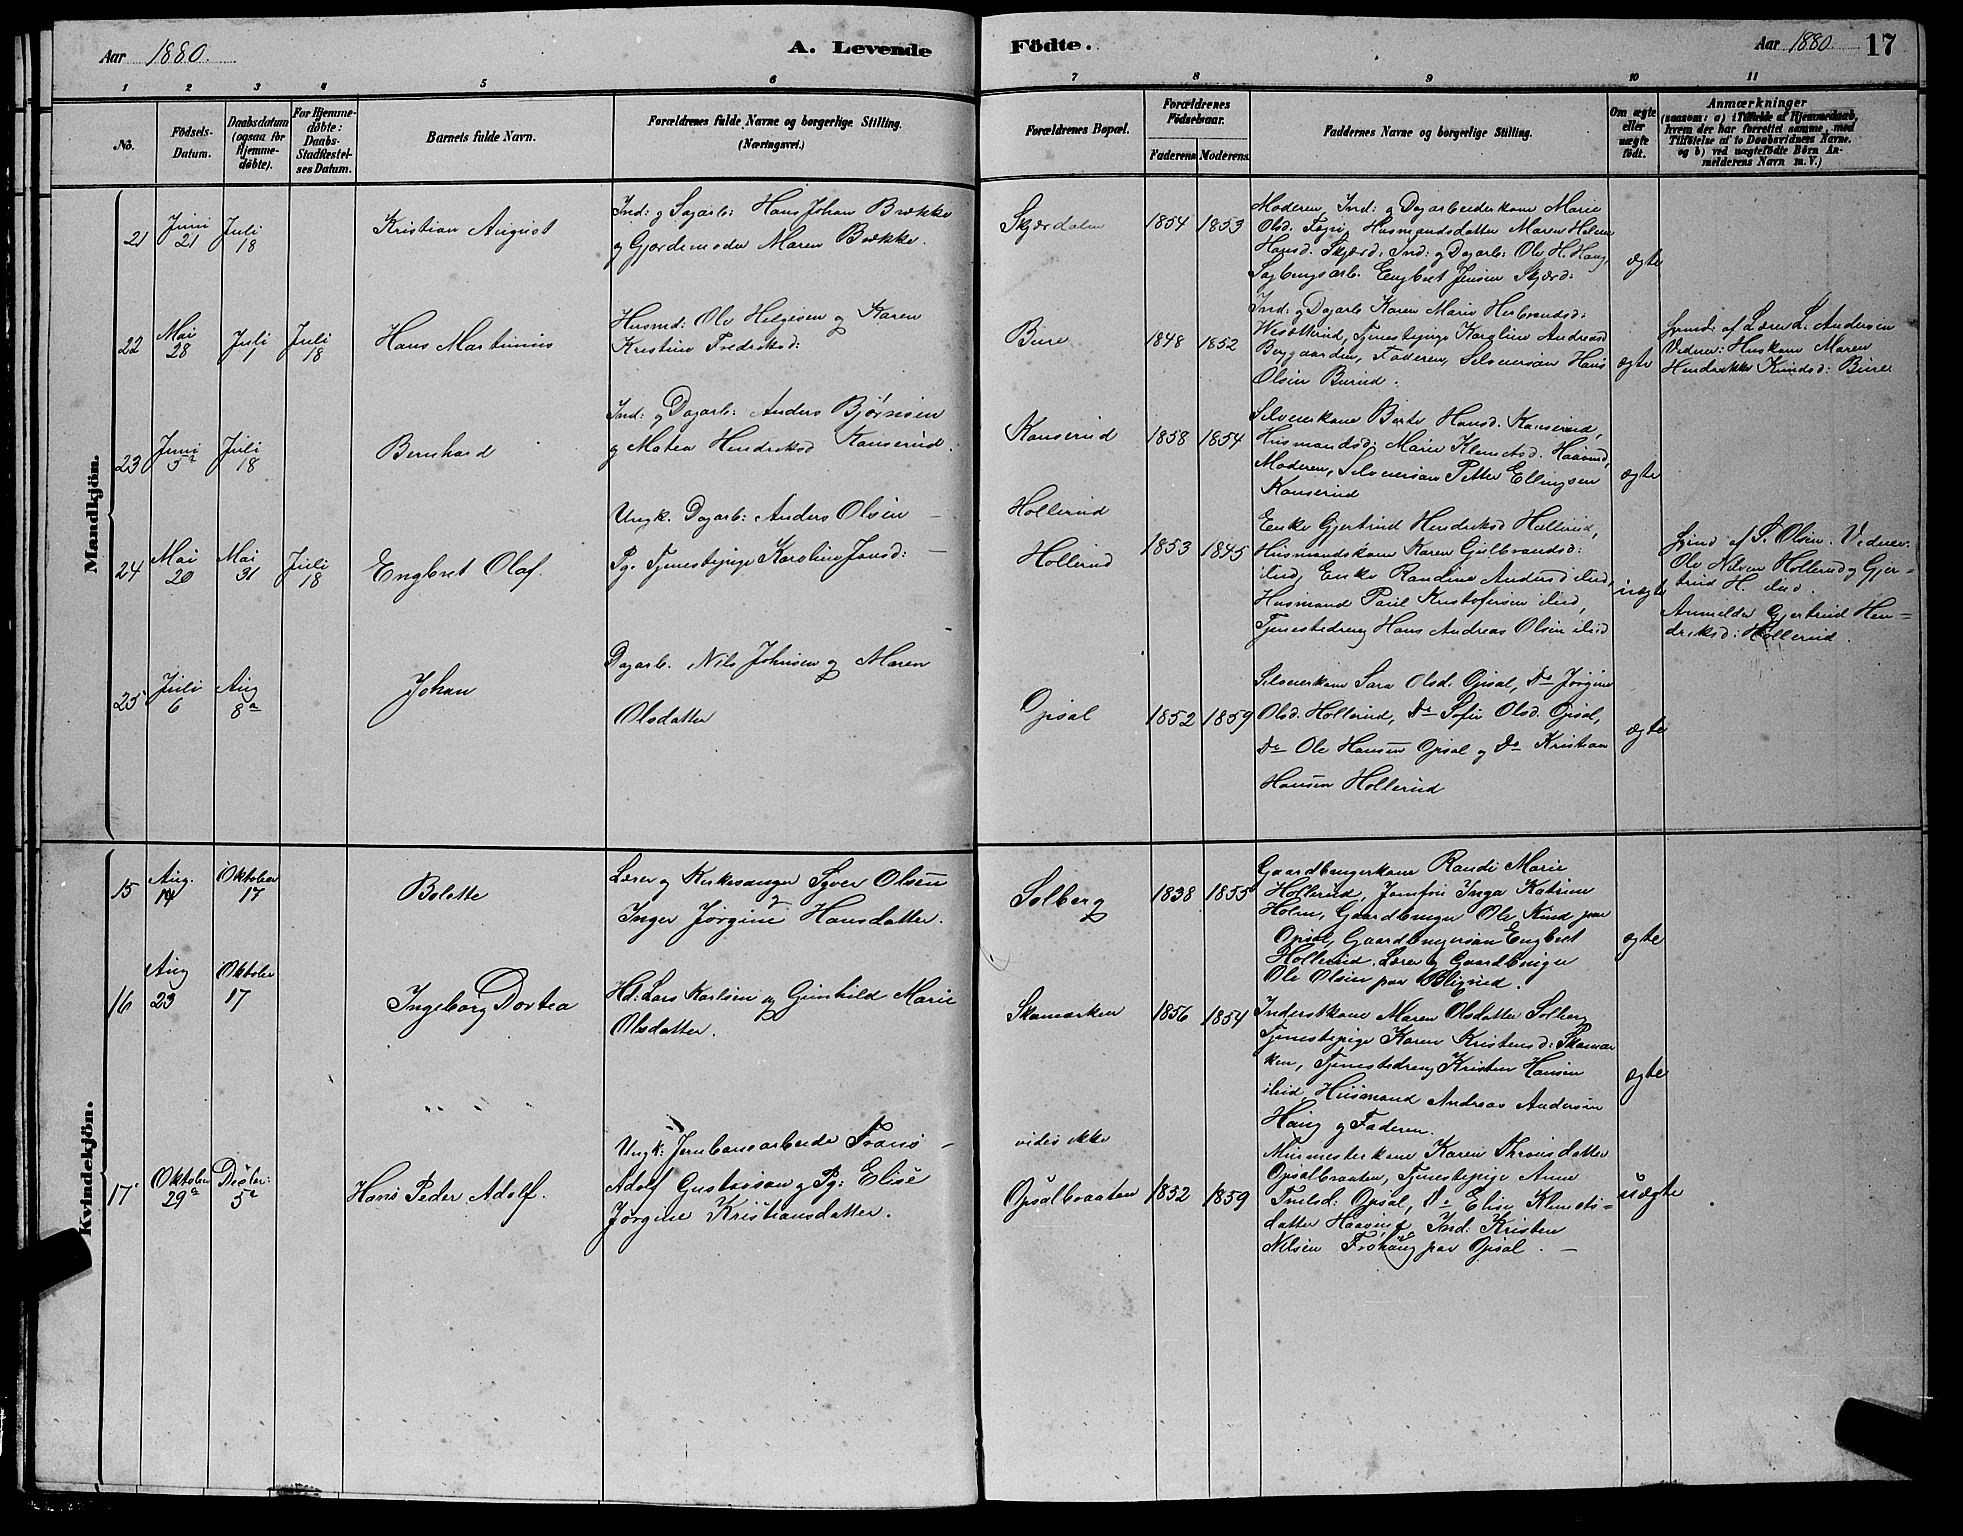 Aar 1880. A. Levende
Födte. Aar 1880 17
1 2 3 4 5 6
7 8 9 10 11
No.
Födsels-
Datum.
Daabsdatum
(ogsaa for
Hjemme-
döbte).
For Hjemme-
döbte:
Daabs-
Stadfæstel-
ses Datum.
Barnets fulde Navn.
Forældrenes fulde Navne og borgerlige Stilling.
(Næringsvei.)
Forældrenes Bopæl.
Forældrenes
Födselsaar.
Faderens Moderens
Faddernes Navne og borgerlige Stilling.
Om ægte
eller
uægte
födt.
Anmærkninger
(saasom: a) i Tilfælde af Hjemmedaab,
hvem der har forrettet samme, med
Tilföielse af to Daabsvidners Navne.
og b) ved uægtefödte Börn An-
melderens Navn m. V.)
Mandkjön.
21
Juni
21
Juli
18
Kristian August
Ind: g Dagarb: Hans Johan Brække
g Gjordemoder Maren Brække.
Skjærdalen
1854 1853
Moderen, Ind: g Dagarbeiderkone Marie
Olsd. Husmandsdatter Maren Helene
Hansd. Skjærd. Ind: g Dagarb: Ole H. Haug,
Sagbrugsarb. Engbret Jensen Skjærd:
ægte
22
Mai
28
Juli
1
Juli
18
Hans Martinius
Husmd: Ole Helgesen g Karen
Kristine Fredriksd:
Bure
1848 1852
Ind: g Dagarb Karen Marie Herbrandsd:
Tjenestepige Karoline Andreasd
Berggaarden, Faderen, Selveiersøn Hans
Olsen Burud.
ægte
hjmd: af Lærer L. Andersen
Vidner: Huskone Maren
Hendrikke Knudsd: Bure
23
Juni
5te
Juli
18
Bernhard
Ind: g Dagarb: Anders Bjørnsen
g Matea Hendriksd Kanserud.
Kanserud
1858 1854
Selveierkone Berte Hansd. Kanserud,
Husmandsd: Marie Klemetsd. Haavind,
Moderen, Selveiersøn Petter Ellingsen
Kanserud
ægte
24
Mai
20
Mai
31
Juli
18
Engbret Olaf.
Ungk. Dagarb: Anders Olsen –
Pg. Tjenestepige Karoline Jansd: –
Hollerud
Hollerud
1853 1845
Enke Gjertrud Hendriksd Hollerud,
Husmandskone Karen Gulbrandsd:
ibid, Enke Randine Andersd ibid,
Husmand Paul Kristofersen ibid,
Tjenestedreng Hans Andreas Olsen ibid
uægte
hjmd af S. Olsen. Vidner:
Ole Nilsen Hollerud g Gjer-
trud H. ibid.
Anmelder Gjertrud Hen-
driksd: Hollerud.
25
Juli
6
Aug
8de
Johan
Dagarb. Nils Johnsen g Maren
Olsdatter
Opsal
1852 1859
Selveierkone Sara Olsd. Opsal, Do Jørgine
Olsd. Hollerud, Do Sofie Olsd. Opsal,
Do Ole Hansen Opsal g Do Kristian
Hansen Hollerud
ægte
Kvindekjön.
15
Aug.
14
Oktober
17
Bolette
Lærer g Kirkesanger Syver Olsen
g Inger Jørgine Hansdatter.
Solberg
1838 1855
Gaardbrugerkone Randi Marie
Hollerud, Jomfru Inga Katrine
Holm, Gaardbruger Ole Knud paa
Opsal, Gaardbrugersøn Engbret
Hollerud. Lærer g Gaardbruger
Ole Olsen paa
ægte
16
Aug
23
Oktober
17
Ingeborg Dortea
Hd: Lars Karlsen og Gunhild Marie
Olsdatter.
Skamarken
1856 1854
Inderstkone Maren Olsdatter Solberg
Tjenestepige Karen Kristensd: Skamar
ken, Tjenestedreng Kristen Hansen
ibid, Husmand Andreas Andersen
Haug g Faderen.
ægte
17
Oktober
29de
Desbr:
5te
" " " "
Hans Peder Adolf.
Ungk: Jernbanearbeider Frans –
Adolf Gustavsøn g Pg: Elise
Jørgine Kristiansdatter.
vides ikke
Opsalbraaten
1852 1859
Murmesterkone Karen Thronsdatter
Opsalbraaten, Tjenestepige Anne
Trulsd: Opsal, Do Elise Klemets-
datter Haavind, Ind: Kristen
Nilsen Frohaug paa Opsal. –
uægte